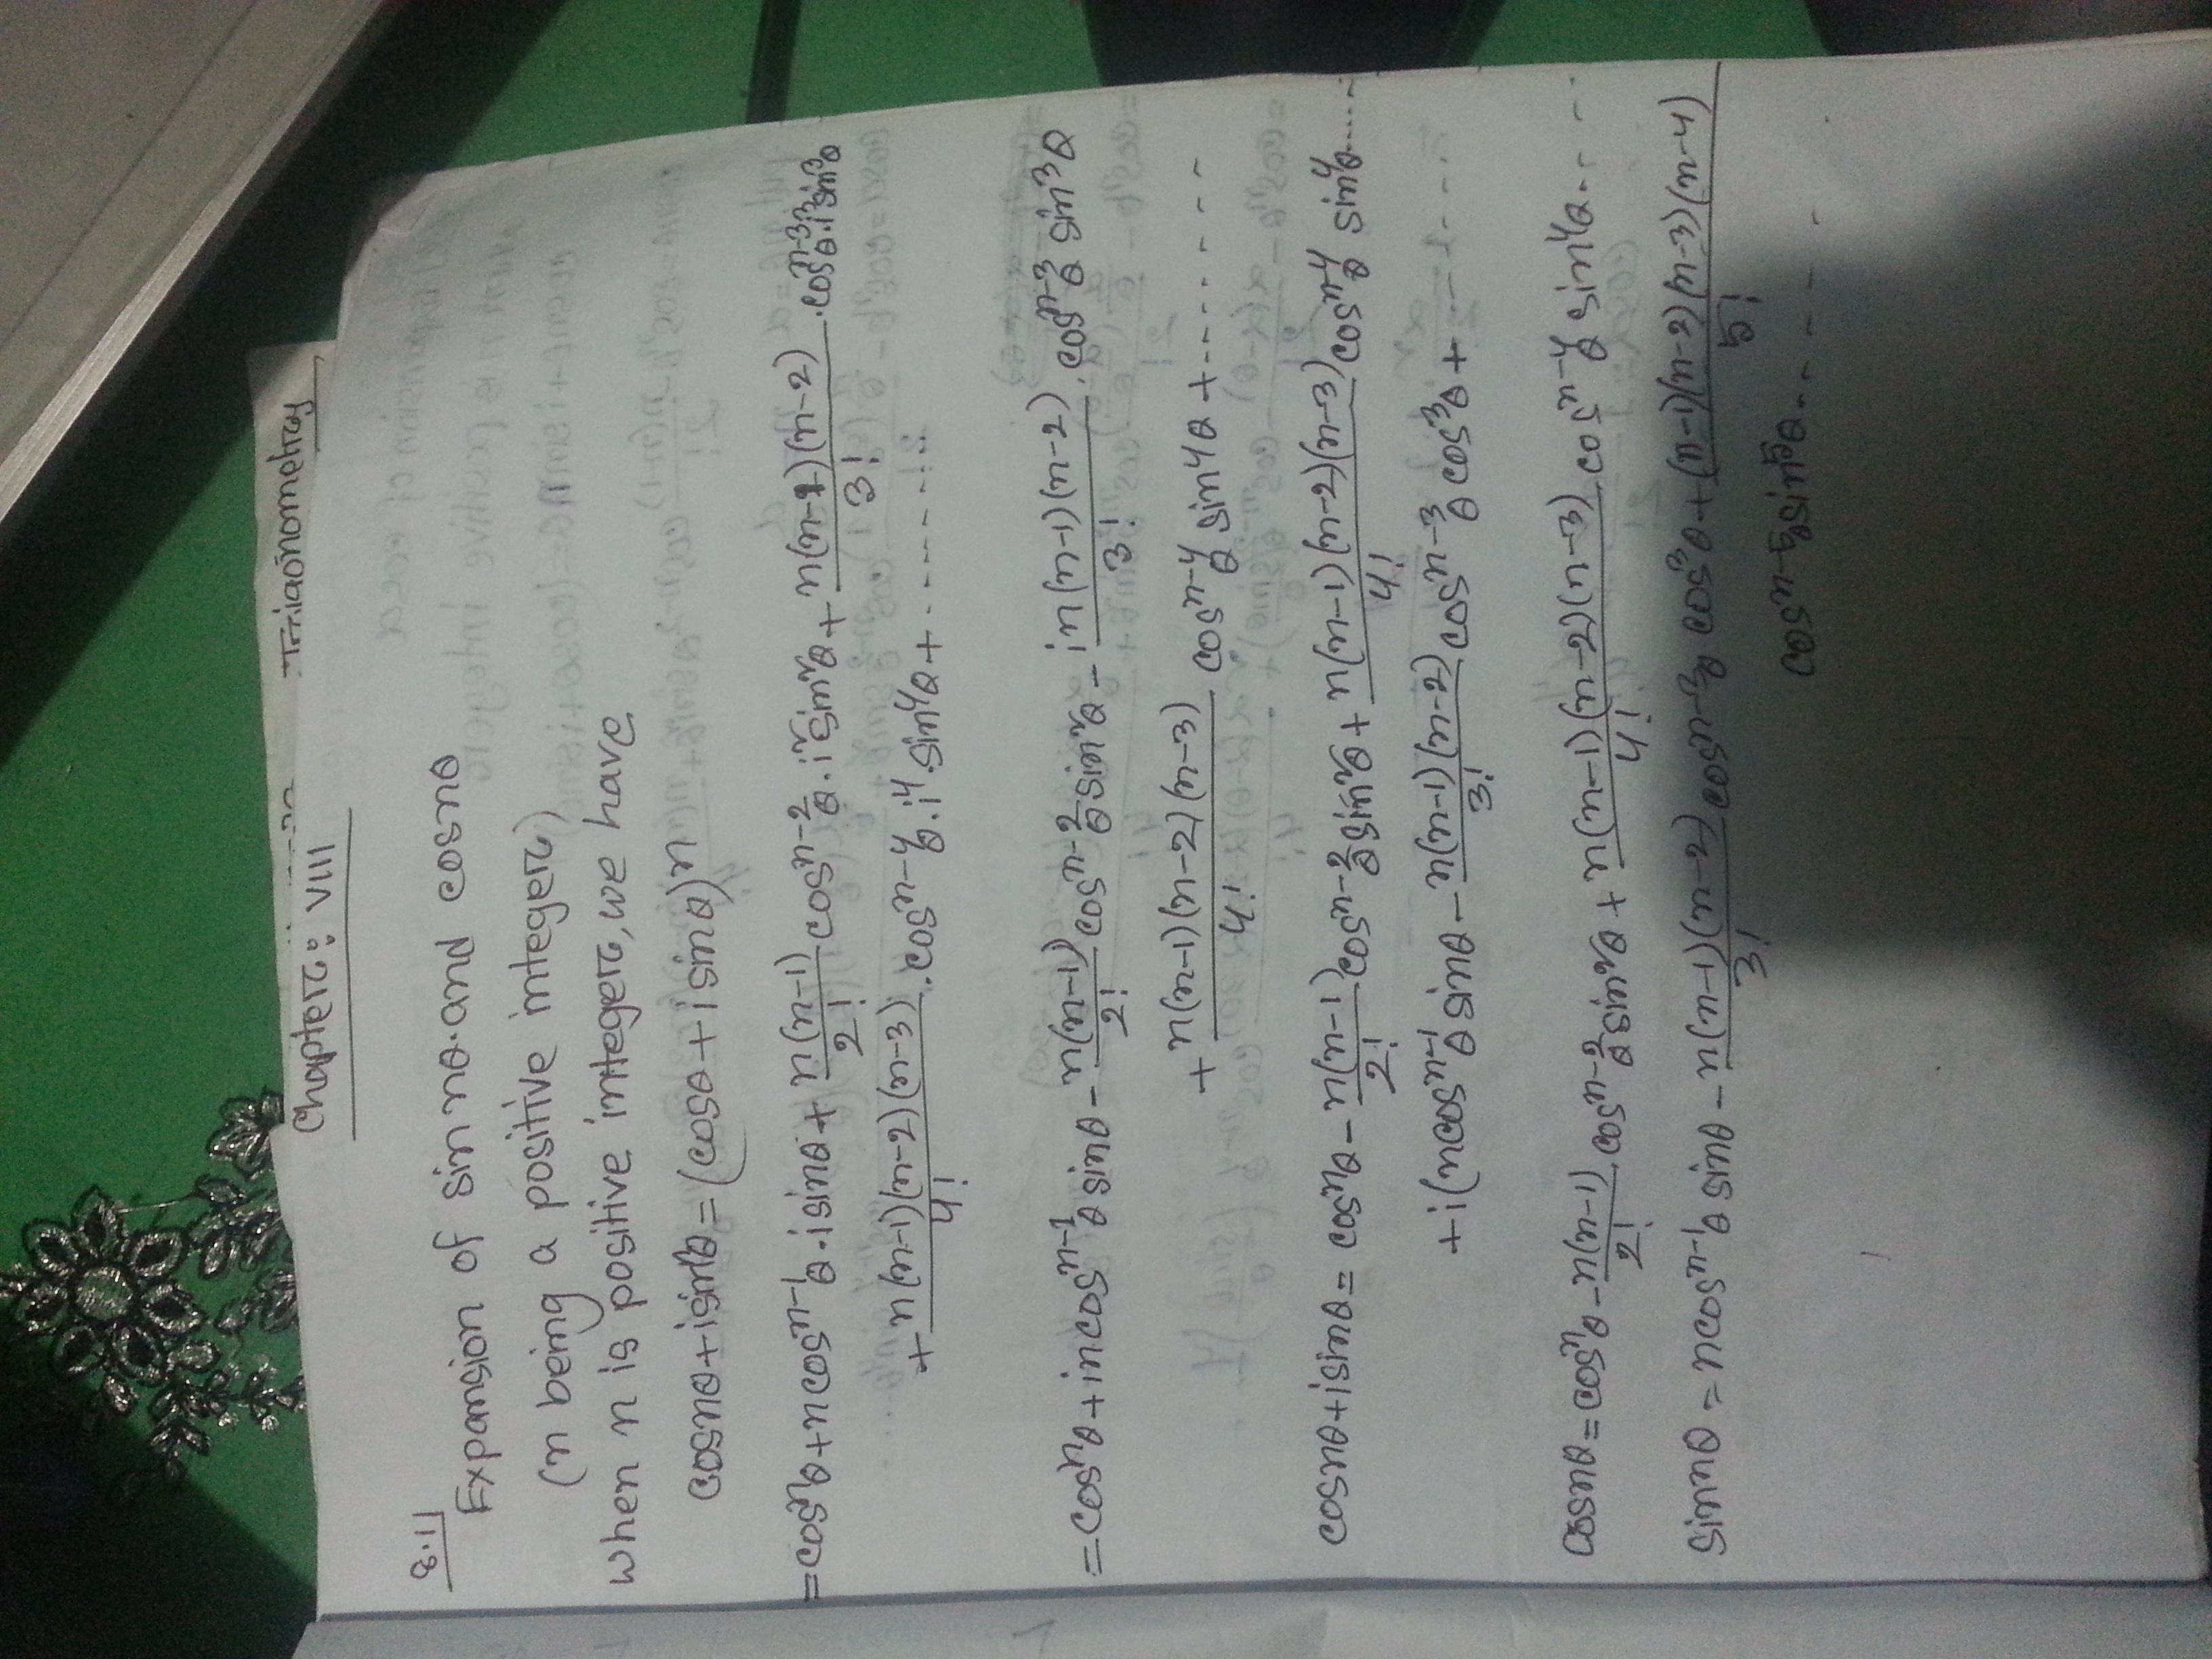 Trigonometry
Chapter: VIII
8.1
Expansion of sin nθ. and cosnθ
(n being a positive integer)
when n is positive integer, we have
cosnθ+isinnθ=(cosθ+isinθ)ⁿ
=cosⁿθ+ncosⁿ⁻¹θ.isinθ+n(n-1)/2! cosⁿ⁻²θ.i²sin²θ+n(n-1)(n-2)/3! .cosⁿ⁻³θ.i³sin³θ
+n(n-1)(n-2)(n-3)/4! .cosⁿ⁻⁴θ.i⁴.sin⁴θ+.........
=cosⁿθ+incosⁿ⁻¹θsinθ-n(n-1)/2! cosⁿ⁻²θsin²θ-in(n-1)(n-2)/3! .cosⁿ⁻³θ sin³θ
+n(n-1)(n-2)(n-3)/4! cosⁿ⁻⁴θ sin⁴θ+.......
cosnθ+isinθ=cosⁿθ-n(n-1)/2! cosⁿ⁻²θsin²θ+n(n-1)(n-2)(n-3)/4! cosⁿ⁻⁴θ sin⁴θ.....
+i(ncosⁿ⁻¹θsinθ-n(n-1)(n-2)/3! cosⁿ⁻³θcos³θ+
cosnθ=cosⁿθ-n(n-1)/2! cosⁿ⁻²θsin²θ+n(n-1)(n-2)(n-3)/4! cosⁿ⁻⁴θ sin⁴θ.....
sinnθ=ncosⁿ⁻¹θ sinθ-n(n-1)(n-2)/3! cosⁿ⁻³θ cos³θ+(n-1)(n-2)(n-3)(n-4)/5!
cosⁿ⁻⁵θsin⁵θ......